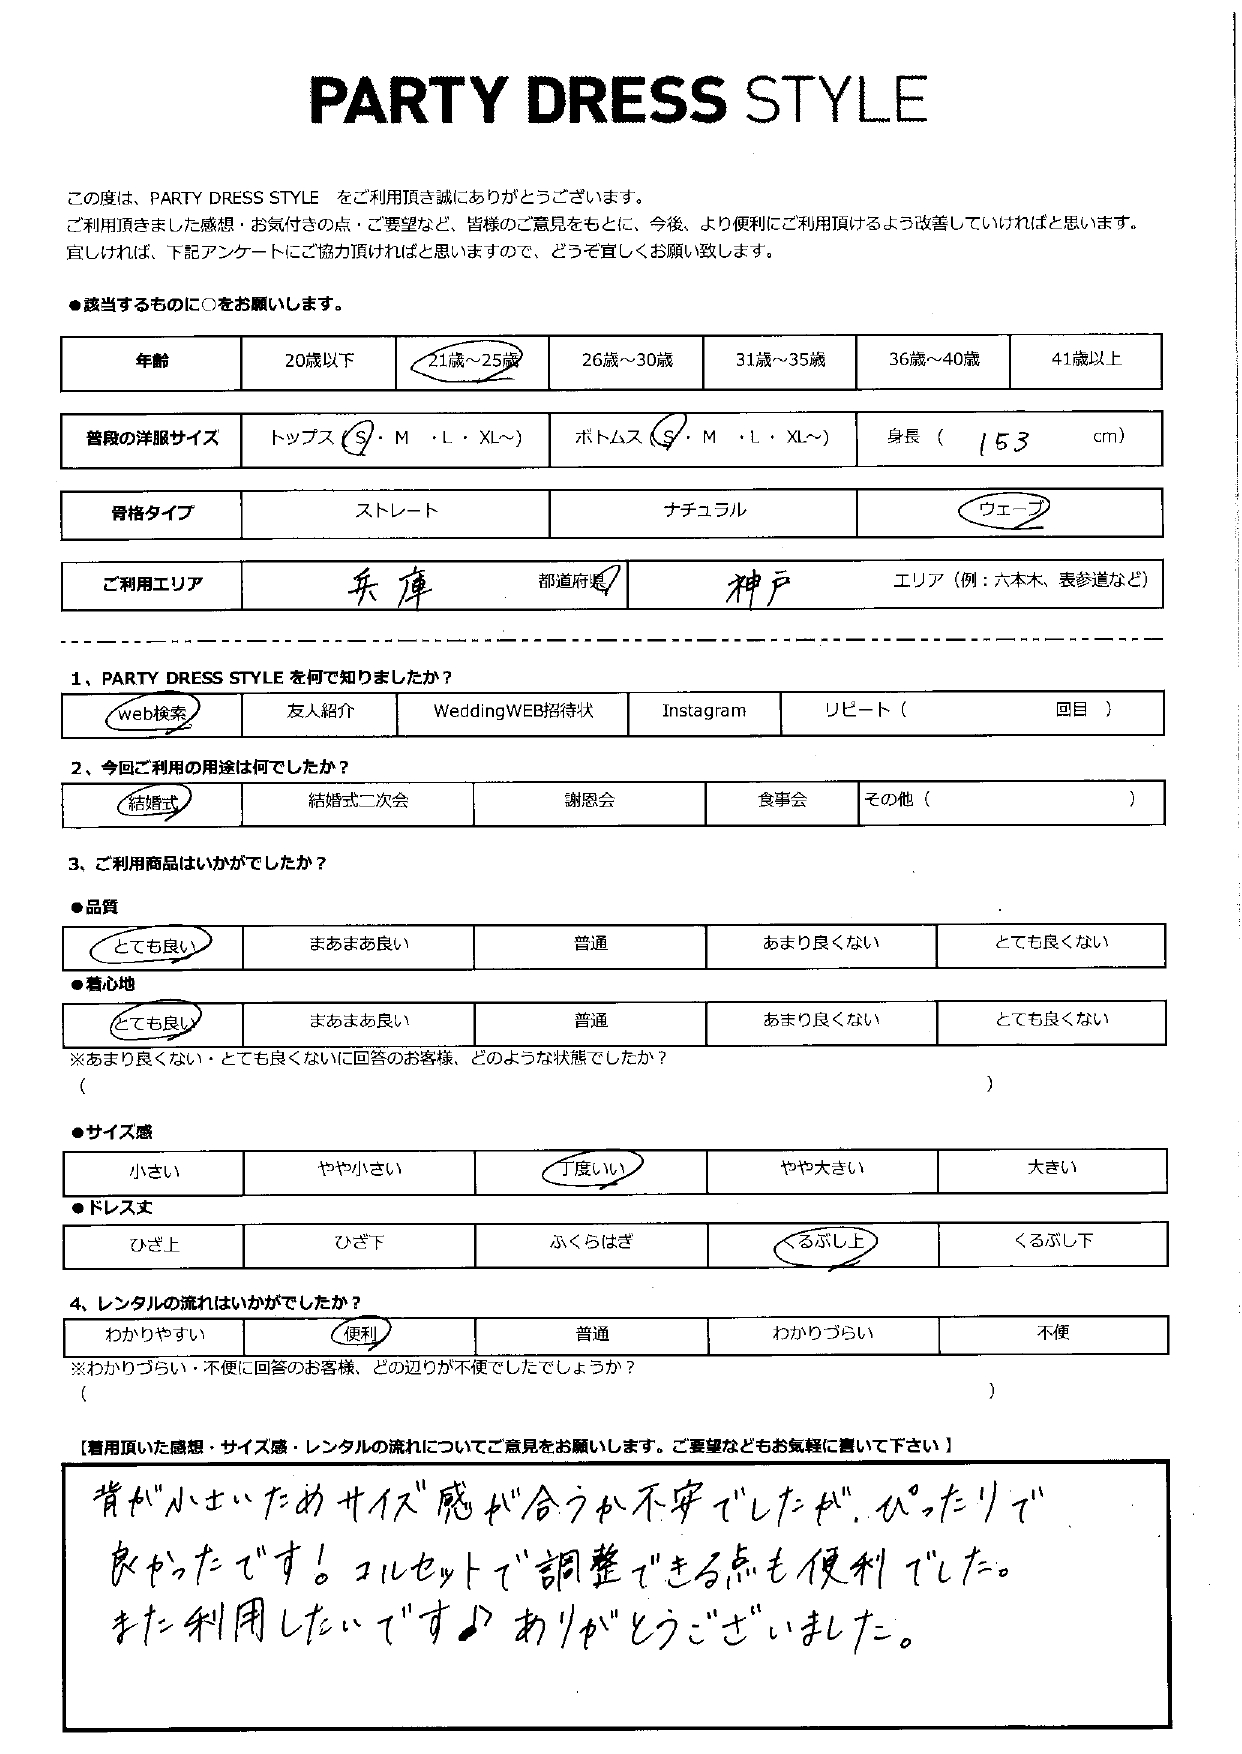 PARTY DRESS STYLE
この度は、PARTY DRESS STYLE をご利用頂き誠にありがとうございます。
ご利用頂きました感想・お気付きの点・ご要望など、皆様のご意見をもとに、今後、より便利にご利用頂けるよう改善していければと思います。
宜しければ、下記アンケートにご協力頂ければと思いますので、どうぞ宜しくお願い致します。
●該当するものに○をお願いします。
年齢 20歳以下 21歳～25歳 26歳～30歳 31歳～35歳 36歳～40歳 41歳以上
普段の洋服サイズ トップス（S・ M ・L ・ XL～） ボトムス（S・ M ・L ・ XL～） 身長（ 153 cm）
骨格タイプ ストレート ナチュラル ウェーブ
ご利用エリア 兵庫 都道府県 神戸 エリア（例：六本木、表参道など）
1、PARTY DRESS STYLE を何で知りましたか？
web検索 友人紹介 WeddingWEB招待状 Instagram リピート（ 回目 ）
2、今回ご利用の用途は何でしたか？
結婚式 結婚式二次会 謝恩会 食事会 その他（ ）
3、ご利用商品はいかがでしたか？
●品質
とても良い まあまあ良い 普通 あまり良くない とても良くない
●着心地
とても良い まあまあ良い 普通 あまり良くない とても良くない
※あまり良くない・とても良くないに回答のお客様、どのような状態でしたか？
（ ）
●サイズ感
小さい やや小さい 丁度いい やや大きい 大きい
●ドレス丈
ひざ上 ひざ下 ふくらはぎ くるぶし上 くるぶし下
4、レンタルの流れはいかがでしたか？
わかりやすい 便利 普通 わかりづらい 不便
※わかりづらい・不便に回答のお客様、どの辺りが不便でしたでしょうか？
（ ）
【着用頂いた感想・サイズ感・レンタルの流れについてご意見をお願いします。ご要望などもお気軽に書いて下さい】
背が小さいためサイズ感が合うか不安でしたが、ぴったりで
良かったです！コルセットで調整できる点も便利でした。
また利用したいです♪ありがとうございました。